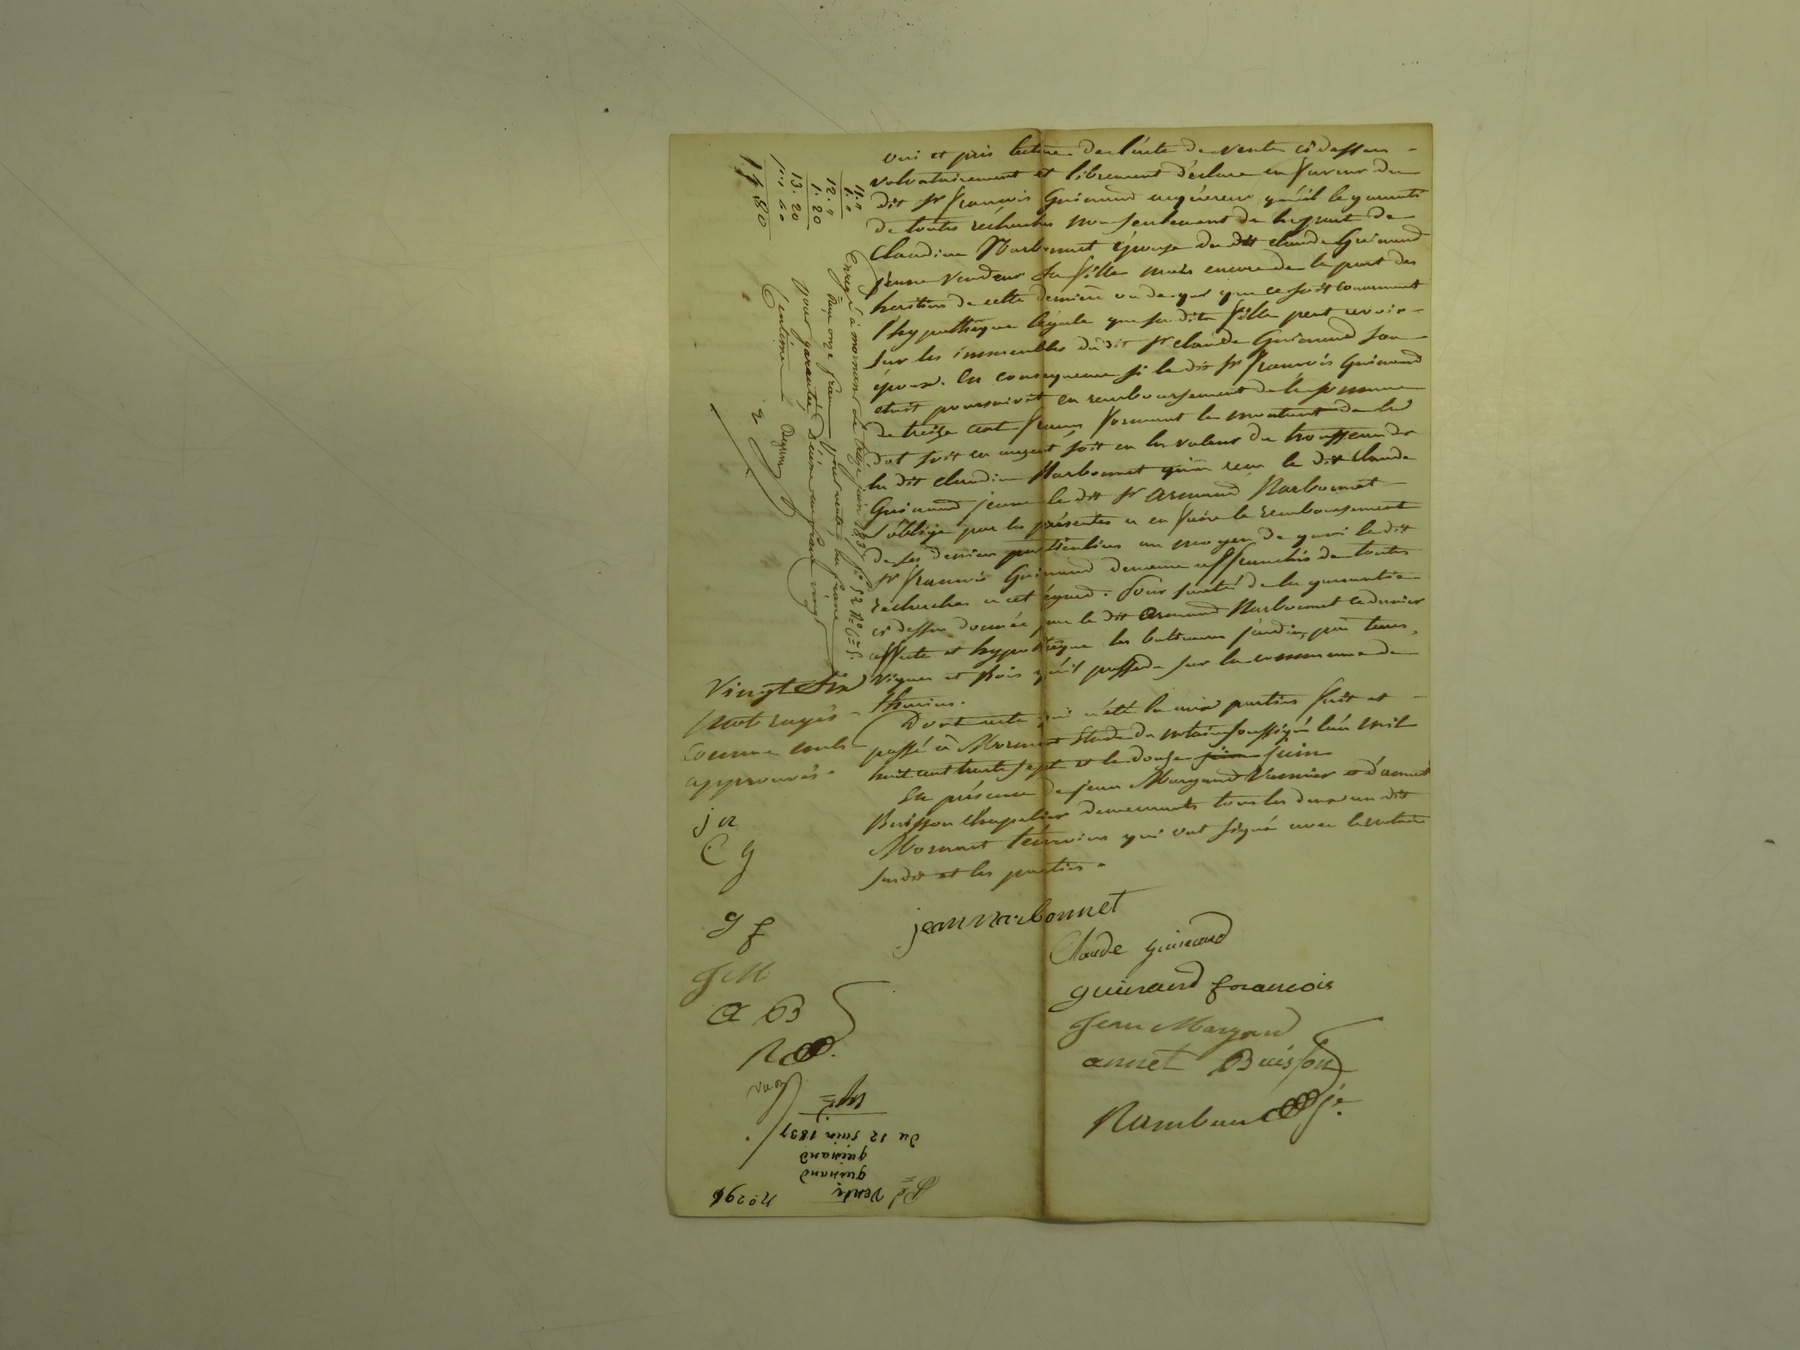 oui et pris lecture de l'acte de vente ci dessus
volontairement et librement déclare en faveur du
dit sr françois Guinand acquéreur qu'il le garanti
de toutes recherches non seulement de la part de
Claudine Narbonnet épouse du dit claude Guinand
jeune vendeur sa fille mais encore de la part des
heritiers de cette dernière ou de qui que ce soit concernant
l'hypothèque légale que sa dite fille peut avoir
sur les immeubles du dit sr claude Guinand son
époux. En conséquence si le dit sr françois Guinand
etait poursuivit en remboursement de la somme
de treize cent francs formant le montant de la
dot soit en argent soit en la valeur du trousseau de
la dit claudine Narbonnet qu'a reçu le dit claude
Guinand jeune le dit sr Armand Narbonnet
s'oblige par les présentes a en faire le remboursement
de ses deniers particuliers au moyen de quoi le dit
sr françois Guinand demeure affranchis de toutes
recherches a cet égard. Pour sureté de la garantie
ci dessus donnée par le dit Armand Narbonnet ce dernier
affecte et hypothèque les batimens jardin, pré terres,
vignes et bois qu'il possede sur la commune de
Thurins.
Dont acte qui a été lu aux parties fait et
passé à Mornant Etude du notaire soussigné l'an mil
huit cent trente sept et le douze juin juin
En présence de jean Margand et d'annet
Buisson chapelier demeurants tous les deux au dit
Mornant témoins qui ont signé avec le notaire
susdit et les parties.
jean narbonnet
Claude guinand
guinand francois
Jean Margand
annet Buisson
Rambaud
Vingt six
mots rayés
comme nuls
approuvés.
jn
C g
g f
J M
a B
R
11. "
1. 10
12. "
1. 20
13. 20
1. 60
14. 80
Enregé à mornant le treize juin 1837 fo 52
Reçu onze francs pour vente
pour garantie deux francs vingt
Centimes
No 296
Vente
guinand
guinand
du 12 juin 1837